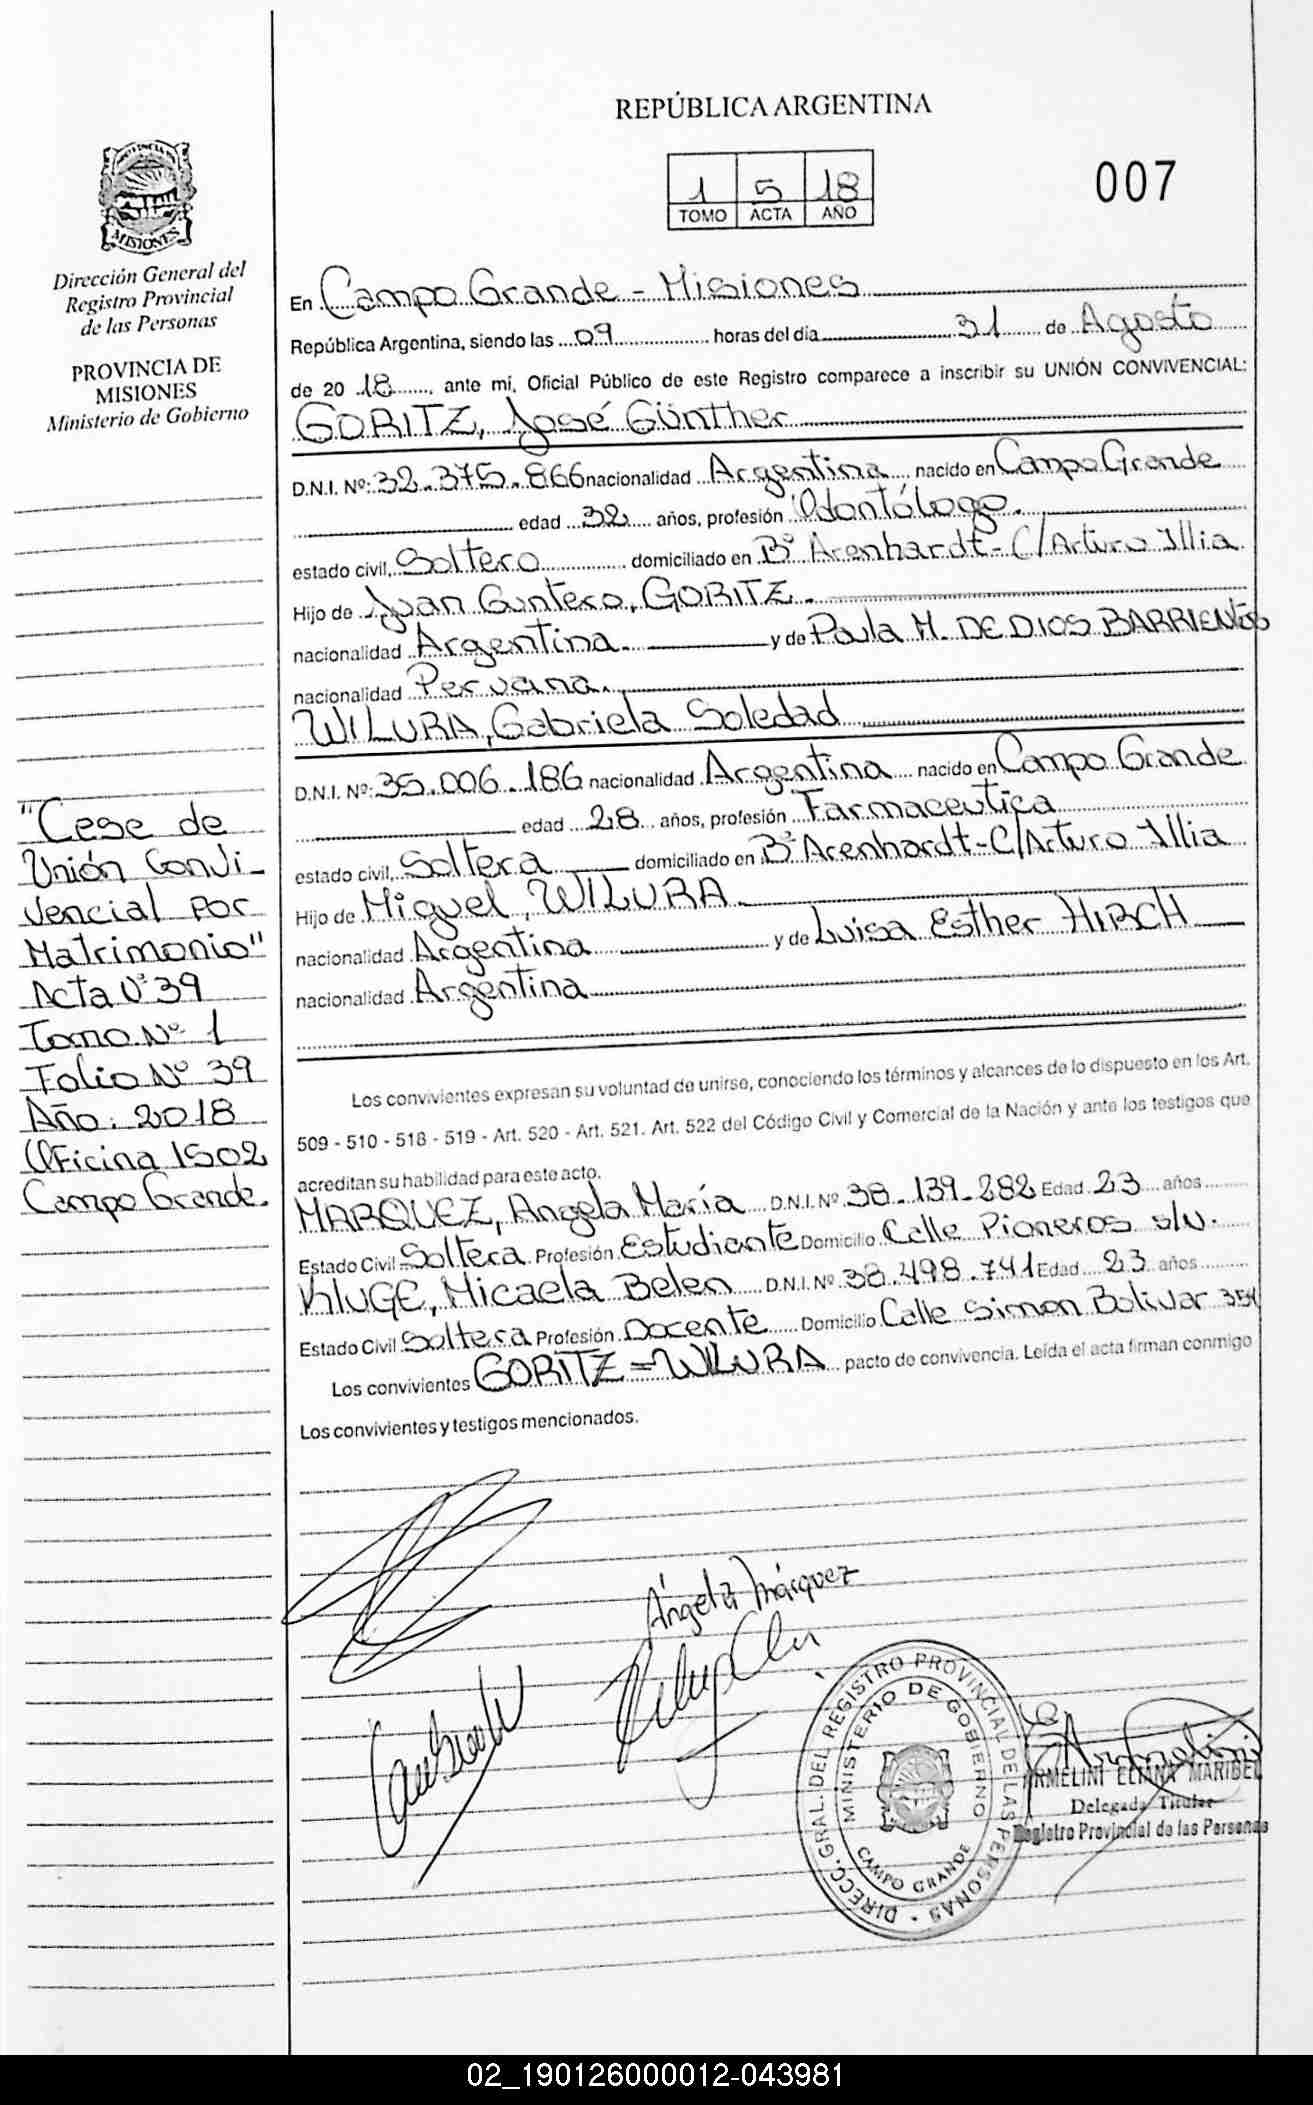 REPÚBLICA ARGENTINA
1 5 18
TOMO ACTA AÑO
007
MISIONES
Dirección General del
Registro Provincial
de las Personas
PROVINCIA DE
MISIONES
Ministerio de Gobierno
"Cese de
Unión Convi-
vencial por
Matrimonio"
Acta Nº 39
Tomo Nº 1
Folio Nº 39
Año: 2018
Oficina 1502
Campo Grande.
En Campo Grande - Misiones
República Argentina, siendo las 09 horas del día 31 de Agosto
de 2018, ante mí, Oficial Público de este Registro comparece a inscribir su UNIÓN CONVIVENCIAL:
GORITZ, José Günther
D.N.I. Nº: 32.375.866 nacionalidad Argentina nacido en Campo Grande
edad 32 años, profesión Odontólogo.
estado civil, Soltero domiciliado en Bº Arenhardt - C/Arturo Illia
Hijo de Juan Guntero, GORITZ.
nacionalidad Argentina. y de Paula M. DE DIOS BARRIENTOS
nacionalidad Peruana.
WILURA, Gabriela Soledad
D.N.I. Nº: 35.006.186 nacionalidad Argentina nacido en Campo Grande
edad 28 años, profesión Farmaceutica
estado civil, Soltera domiciliado en Bº Arenhardt - C/Arturo Illia
Hijo de Miguel, WILURA
nacionalidad Argentina y de Luisa Esther HIRCH
nacionalidad Argentina
Los convivientes expresan su voluntad de unirse, conociendo los términos y alcances de lo dispuesto en los Art.
509 - 510 - 518 - 519 - Art. 520 - Art. 521. Art. 522 del Código Civil y Comercial de la Nación y ante los testigos que
acreditan su habilidad para este acto.
MARQUEZ, Angela María D.N.I. Nº 38.139.282 Edad 23 años
Estado Civil Soltera Profesión Estudiante Domicilio Calle Pioneros s/N.
KluGE, Micaela Belen D.N.I. Nº 38.498.741 Edad 23 años
Estado Civil Soltera Profesión Docente Domicilio Calle Simon Bolivar 354
Los convivientes GORITZ = WILURA pacto de convivencia. Leída el acta firman conmigo
Los convivientes y testigos mencionados.
Ángela Márquez
DIRECC. GRAL. DEL REGISTRO PROVINCIAL DE LAS PERSONAS
MINISTERIO DE GOBIERNO
CAMPO GRANDE
ARMELINI ELIANA MARIBEL
Delegada Titular
Registro Provincial de las Personas
02_190126000012-043981